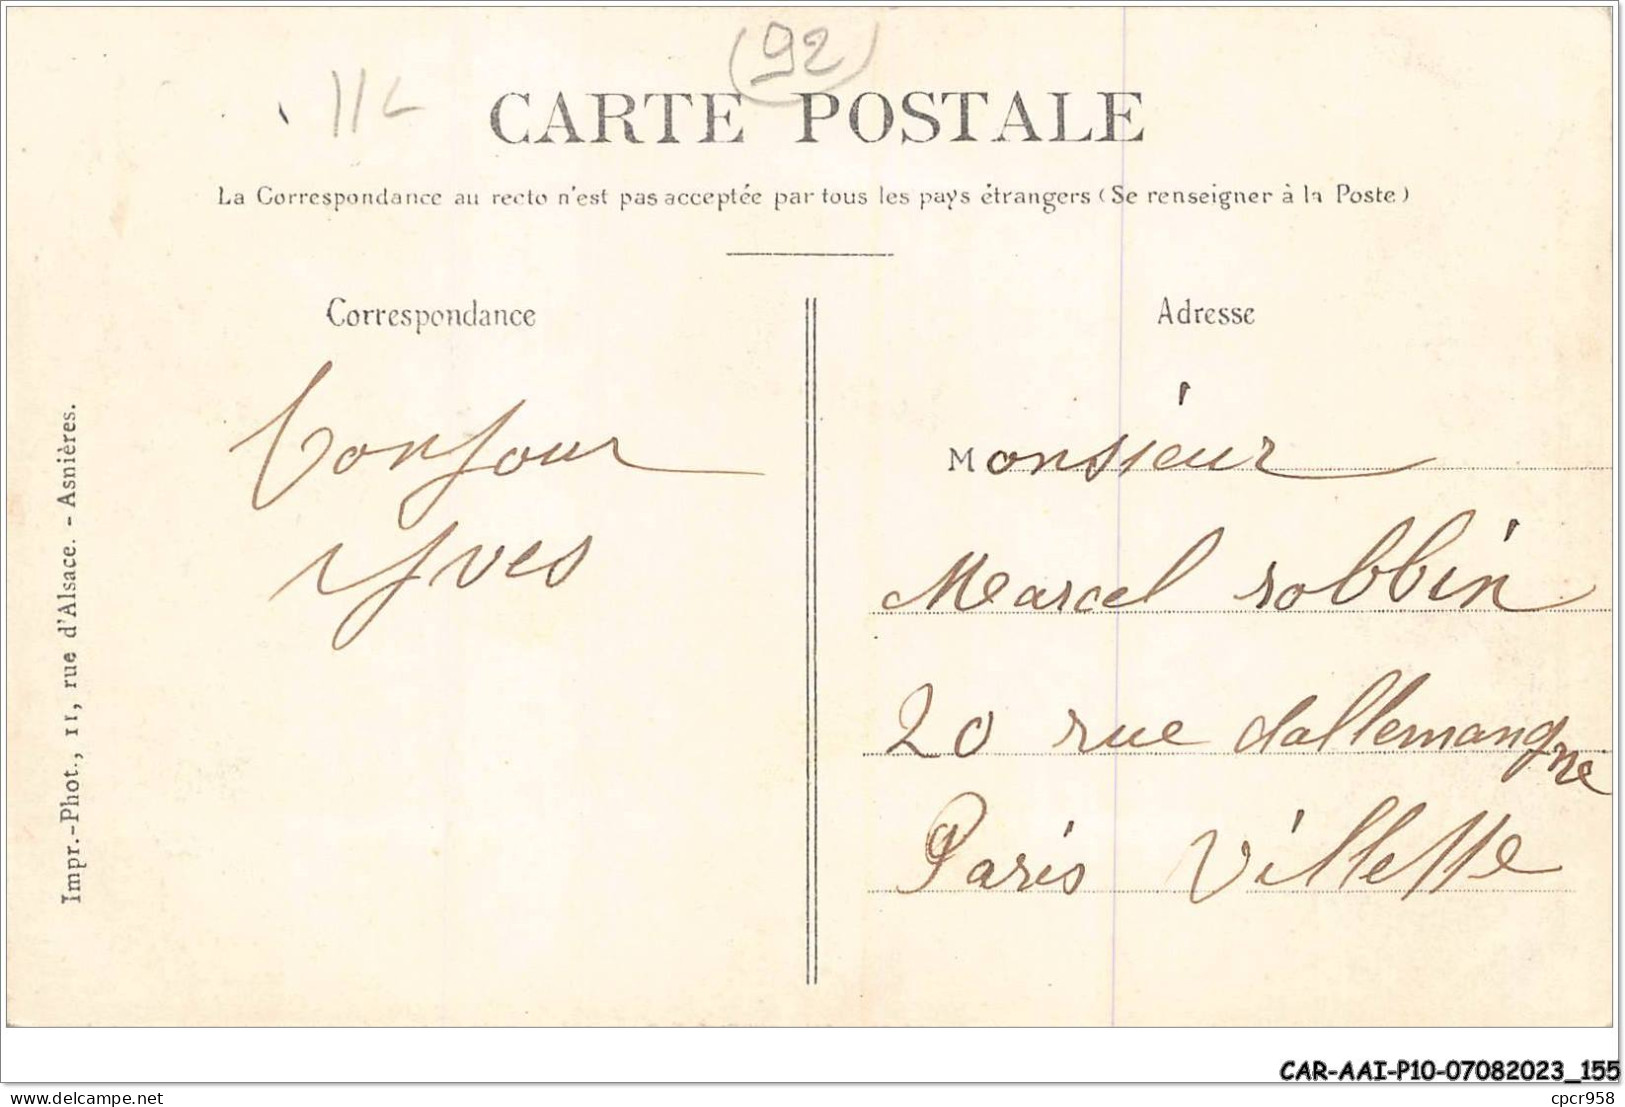 (92)
CARTE POSTALE
La Correspondance au recto n'est pas acceptée par tous les pays étrangers (Se renseigner à la Poste)
Correspondance
bonjour
yves
Adresse
Monsieur
Marcel robbin
20 rue dallemangne
Paris Villette
Impr.-Phot., 11, rue d'Alsace. - Asnières.
CAR-AAI-P10-07082023_155
cpcr958